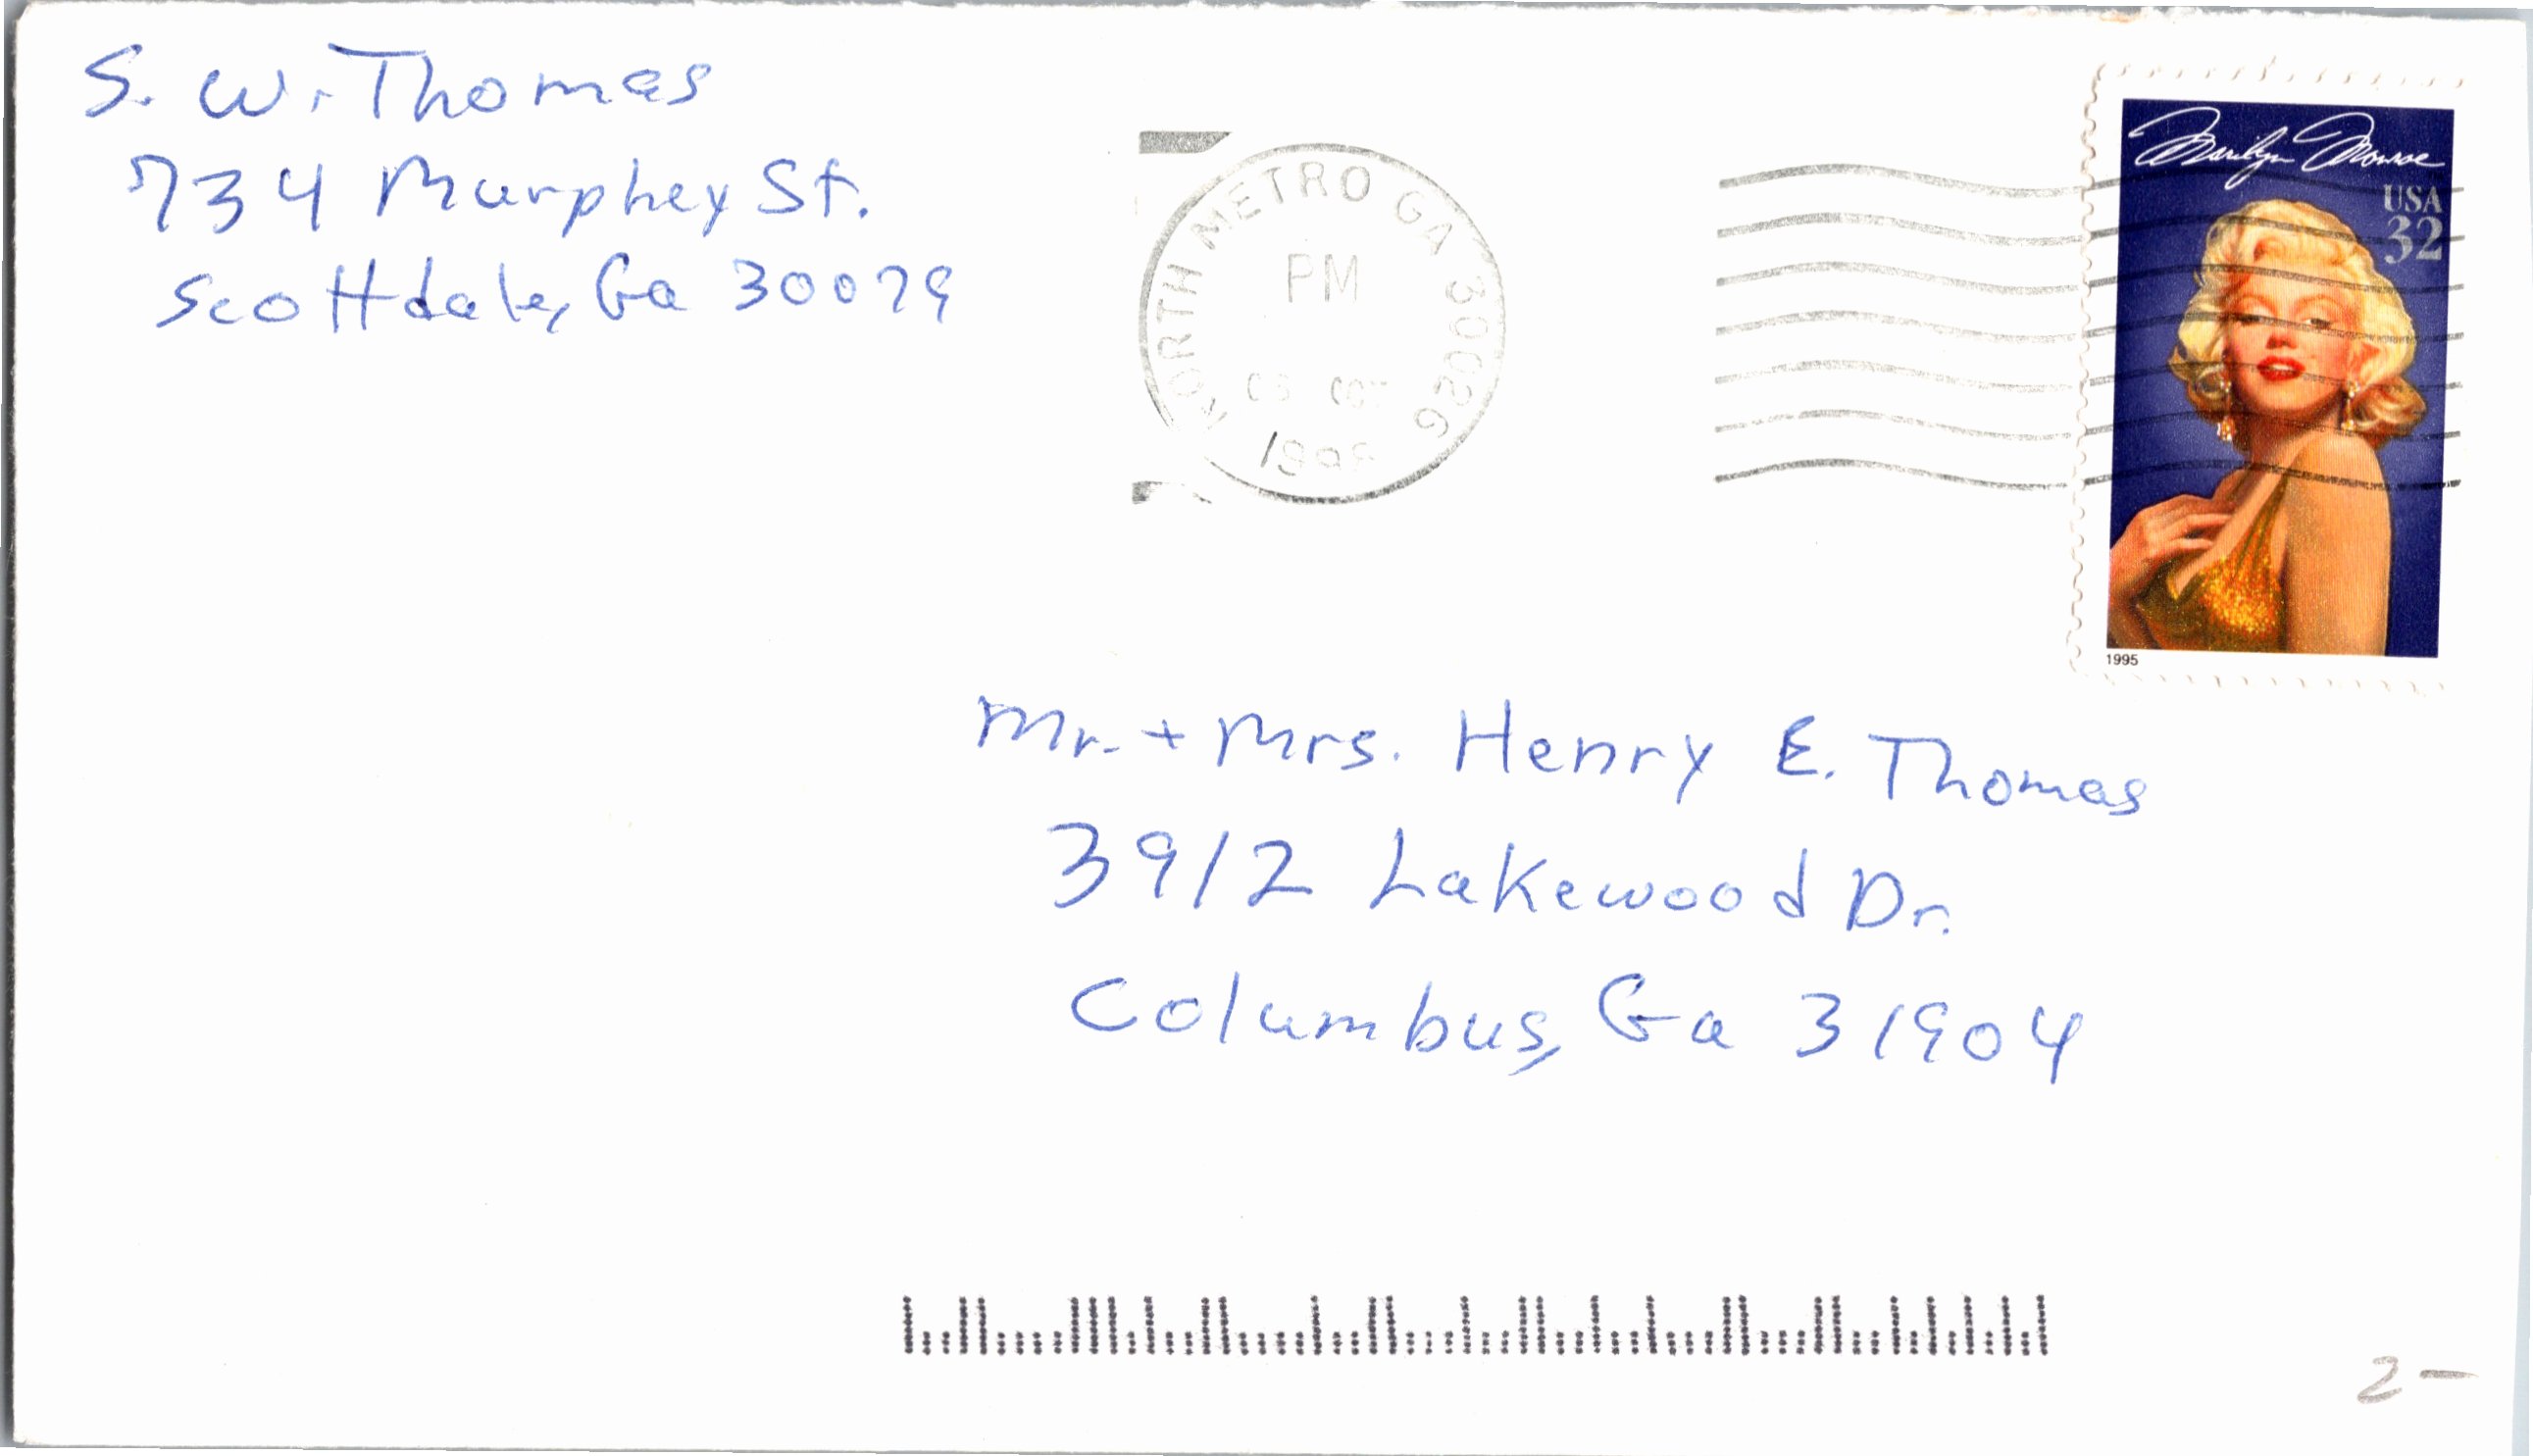 S. W. Thomas
734 Murphey St.
Scottdale, Ga 30079
NORTH METRO GA 30026
PM
Marilyn Monroe
USA
32
1995
Mr. + Mrs. Henry E. Thomas
3912 Lakewood Dr.
Columbus, Ga 31904
2-